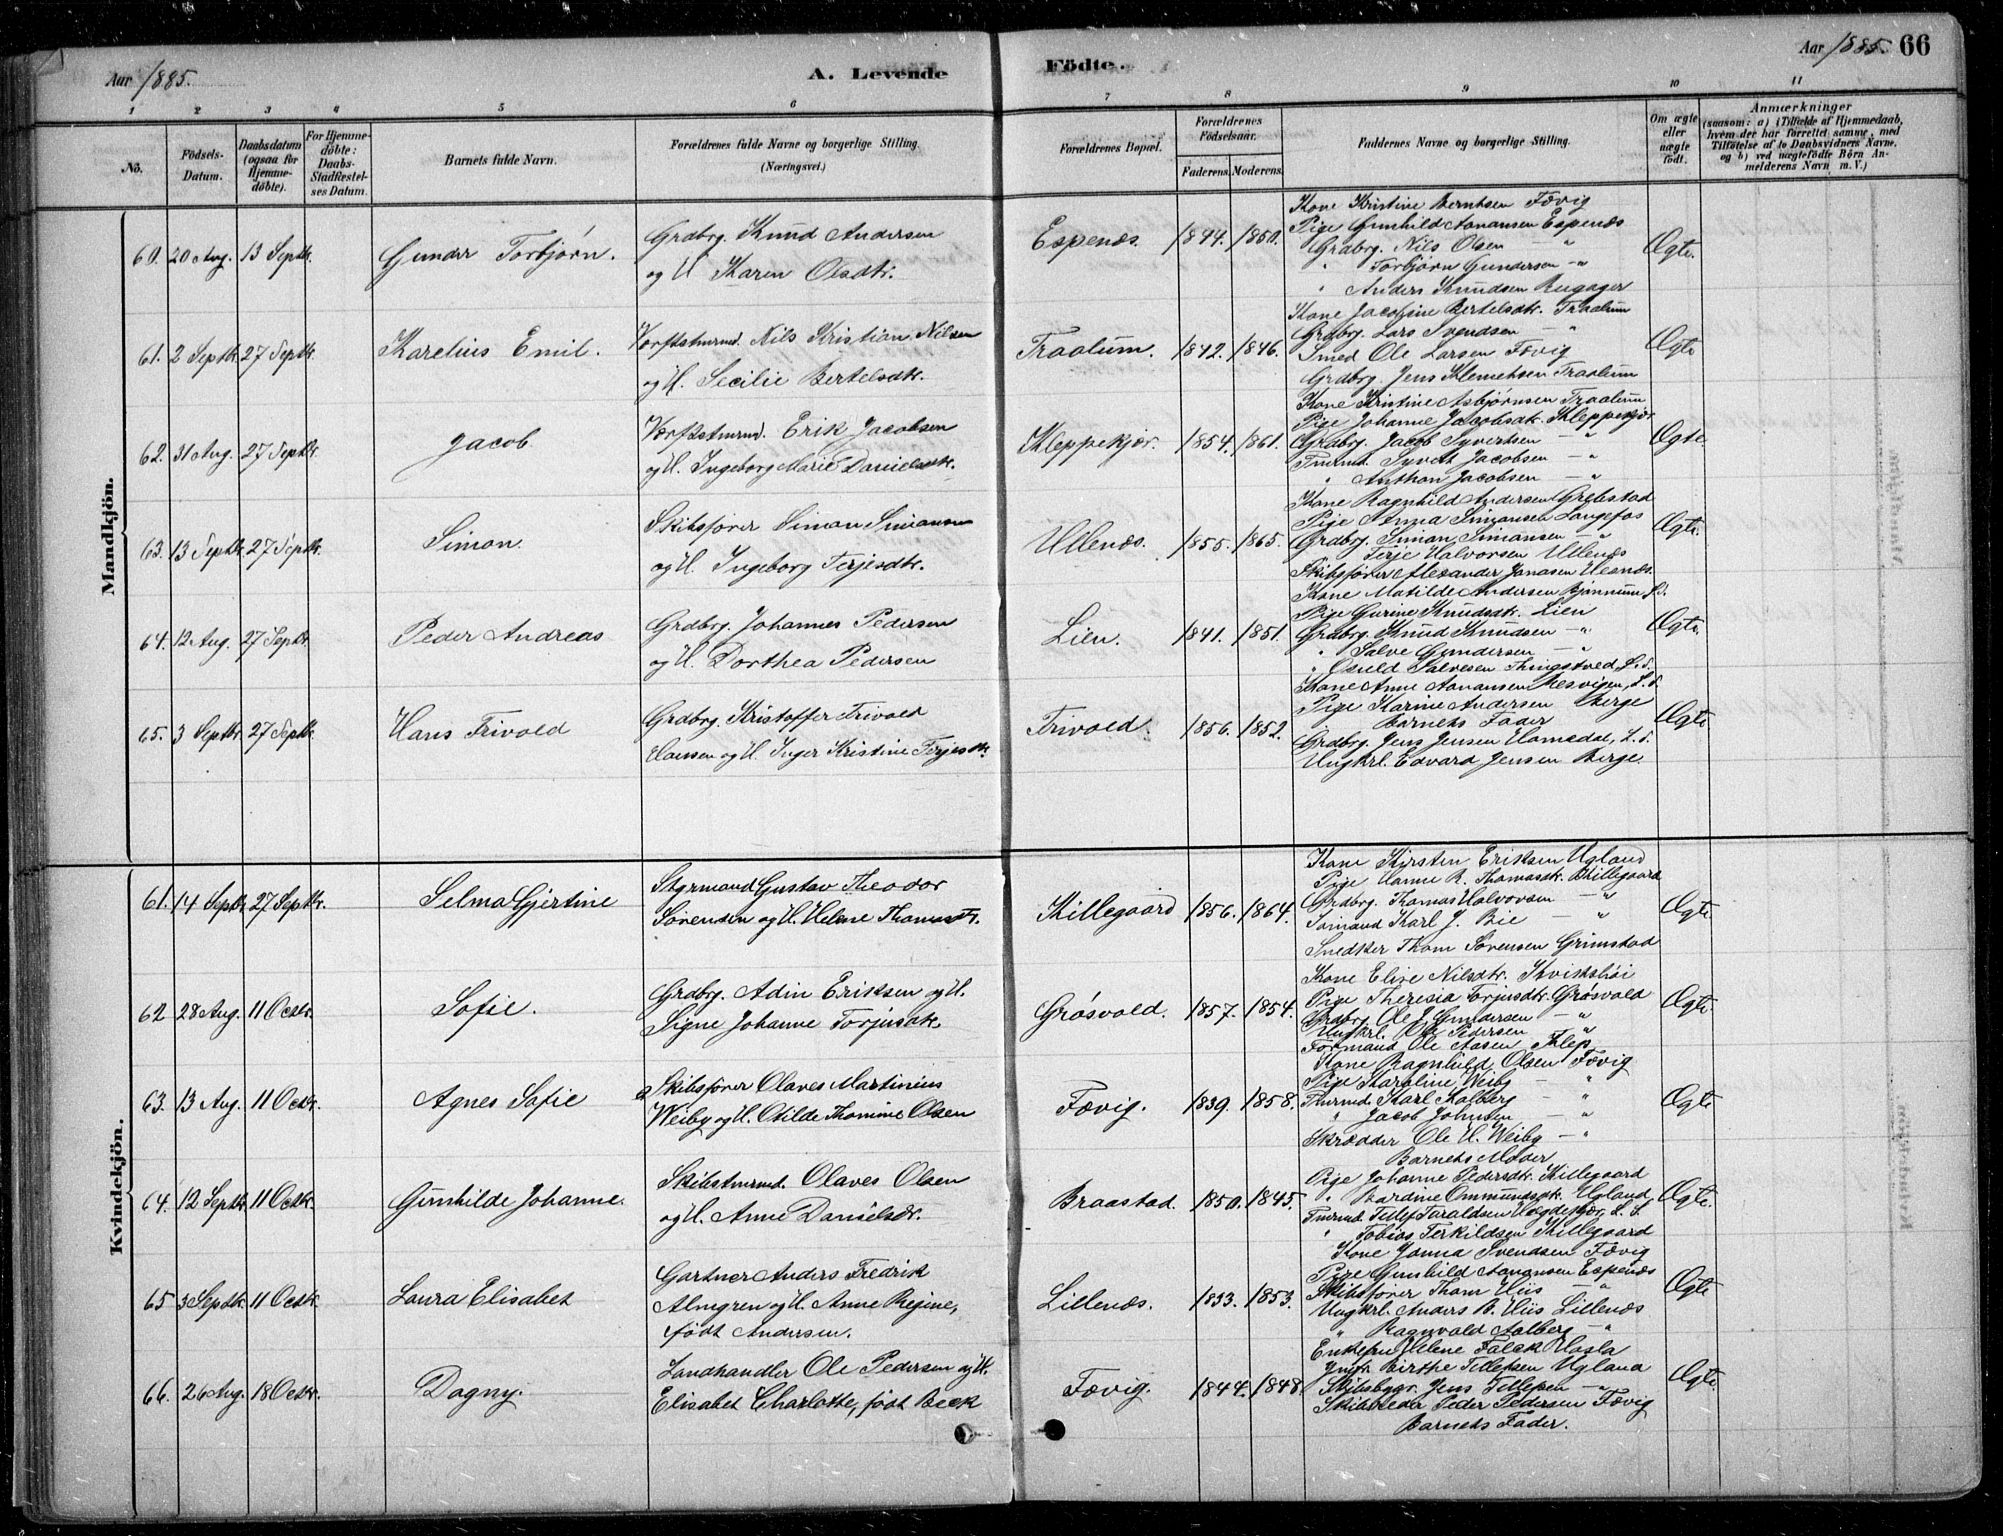 Aar 1885.
A. Levende Födte.
Aar 1885. 66
1 2 3 4 5 6 7 8 9 10 11
No.
Födsels-Datum.
Daabsdatum (ogsaa for Hjemmedöbte).
For Hjemmedöbte: Daabs-Stadfæstelses Datum.
Barnets fulde Navn.
Forældrenes fulde Navne og borgerlige Stilling. (Næringsvei.)
Forældrenes Bopæl.
Forældrenes Födselsaar.
Faderens. Moderens.
Faddernes Navne og borgerlige Stilling.
Om ægte eller uægte födt.
Anmærkninger
(saasom: a) i Tilfælde af Hjemmedaab, hvem der har forrettet samme, med Tilföielse af to Daabsvidners Navne, og b) ved uægtefödte Börn Anmelderens Navn m. V.)
Mandkjön.
60. 20 Aug. 13 Septbr. Gunder Torbjørn. Grdbrg. Knud Andersen
og H. Karen Olsdtr.
Espenæs. 1844. 1850.
Kone Kristine Berntsen Fævig
Pige Gunhild Aanansen Espenæs
Grdbrg. Nils Olsen — "
" Torbjørn Gundersen — "
" Anders Knudsen Rugager
Ægte.
61. 2 Septbr. 27 Septbr. Karelius Emil. Værftstmrmd. Nils Kristian Nilsen
og H. Secilie Bertelsdtr.
Traalum. 1842. 1846.
Kone Jacobine Bertelsdtr. Traalum
Grdbrg. Lars Svendsen — "
Smed Ole Larsen Fævig
Grdbrg. Jens Klemetsen Traalum
Ægte
62. 31 Aug. 27 Septbr. Jacob Værftstmrmd. Erik Jacobsen
og H. Ingeborg Marie Danielsdtr.
Kleppekjær. 1854. 1861.
Kone Kristine Asbjørnsen Traalum
Pige Johanne Jacobsdtr. Kleppekjær
Grdbrg. Jacob Syvertsen — "
Tmrmd. Syvert Jacobsen — "
" Anthon Jacobsen — "
Ægte.
63. 13 Septbr. 27 Septbr. Simon. Skibsfører Simon Simonsen
og H. Ingeborg Terjesdtr.
Ullenæs. 1855. 1865.
Kone Ragnhild Andersen Grebstad
Pige Anna Simonsen Langefos
Grdbrg. Simon Simonsen — "
Terje Halvorsen Ullenæs
Skibsfører Alexander Jonasen Hesnæs.
Ægte.
64. 12 Aug. 27 Septbr. Peder Andreas Grdbrg. Johannes Pedersen
og H. Dorthea Pedersen
Lien. 1841. 1851.
Kone Matilde Andersen Bjønnum L.S.
Pige Gurine Knudsdtr. Lien
Grdbrg. Knud Knudsen — "
" Salve Gundersen — "
" Osuld Salvesen Thingstved, L.S.
Ægte.
65. 3 Septbr. 27 Septbr. Hans Trivold Grdbrg. Kristoffer Trivold
Hansen og H. Inger Kristine Terjesdtr.
Trivold. 1856. 1852.
Kone Anne Aanansen Resvigen, L.S.
Pige Karine Andersen Berge
Barnets Fader
Grdbrg. Jens Jensen Homedal, L.S.
Ungkrl. Edvard Jensen Berge.
Ægte.
Kvindekjön.
61. 14 Septbr. 27 Septbr. Selma Gjertine Styrmand Gustav Theodor
Sørensen og H. Helene Thomasdtr.
Killegaard 1856. 1864.
Kone Kirsten Eriksen Ugland
Pige Hanne R. Thomasdtr. Killegaard
Grdbrg. Thomas Halvorsen — "
Sømand Karl J. Bie — "
Snedker Thom Sørensen Grimstad
Ægte.
62 28 Aug. 11 Octbr. Sofie. Grdbrg. Adin Eriksen og H.
Signe Johanne Torjusdtr.
Grøsvold. 1857. 1854.
Kone Elise Nilsdtr. Kvikshøi
Pige Theresia Torjusdtr. Grøsvold
Grdbrg. Ole J. Gundersen — "
Ungkrl. Ole Pedersen "
Formand Ole Aasen Klep
Ægte.
63. 13 Aug. 11 Octbr. Agnes Sofie Skibsfører Olaves Martinius
Weiby og H. Otilde Thomine Olsen
Fævig. 1839. 1858.
Kone Ragnhild Olsen Fævig
Pige Karoline Weiby — "
Tmrmd. Karl Kalberg — "
" Jacob Johnsen — "
Skrædder Ole H. Weiby — "
Ægte.
64. 12 Septbr. 11 Octbr. Gunhilde Johanne. Skibstmrmd. Olaves Olsen
og H. Anne Danielsdtr.
Braastad. 1850. 1845.
Barnets Moder
Pige Johanne Pedersdtr. Killegaard
" Bardine Ommundsdtr. Ugland
Tmrmd. Tellef Taraldsen Høgdekjær, L.S.
" Tobias Terkildsen Killegaard
Ægte.
65 3 Septbr. 11 Octbr. Laura Elisabet Gartner Anders Fredrik
Almgren og H. Anne Regine,
født Andersen.
Lillenæs. 1833. 1853.
Kone Janna Svendsen Fævig
Pige Gunhild Aanansen Espenæs
Skibsfører Thom Hiis — "
Ungkrl. Anders B. Hiis Lillenæs
" Ragnvald Aalberg — "
Ægte.
66. 26 Aug. 18 Octbr. Dagny. Landhandler Ole Pedersen og H.
Elisabet Charlotte, født Beck
Fævig. 1844. 1848.
Enkefru Helene Falck Hasla
Jmfr. Birthe Tellefsen Ugland
Skibsbygr. Jens Tellefsen — "
Skibsreder Peder Pedersen Fævig
Barnets Fader.
Ægte.